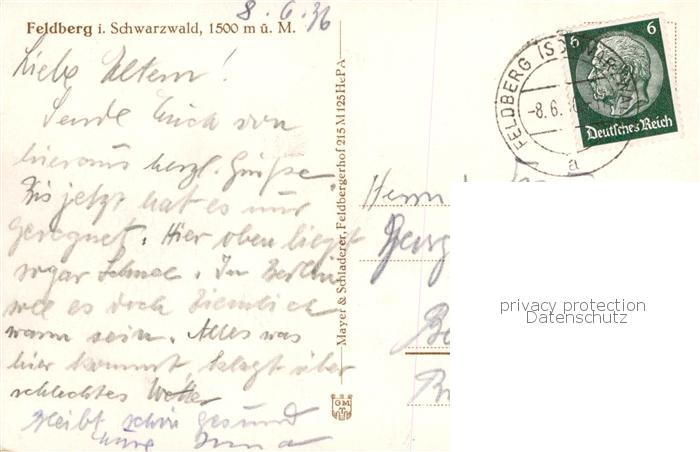 8.6.36
Feldberg i. Schwarzwald, 1500 m ü. M.
Liebe Eltern!
Sende Euch von
hieraus herzl. Grüße
Bis jetzt hat es nur
geregnet. Hier oben liegt
sogar Schnee. In Berlin
es doch ziemlich
warm sein. Alles was
hier kommt, klagt über
schlechtes Wetter
bleibt schön gesund
Eure
Mayer & Schladerer, Feldbergerhof 215 M 125 HePA
GM
FELDBERG (SCHWARZWALD)
-8.6.
a
6 6
Deutsches Reich
Herrn
Georg
Be
privacy protection
Datenschutz